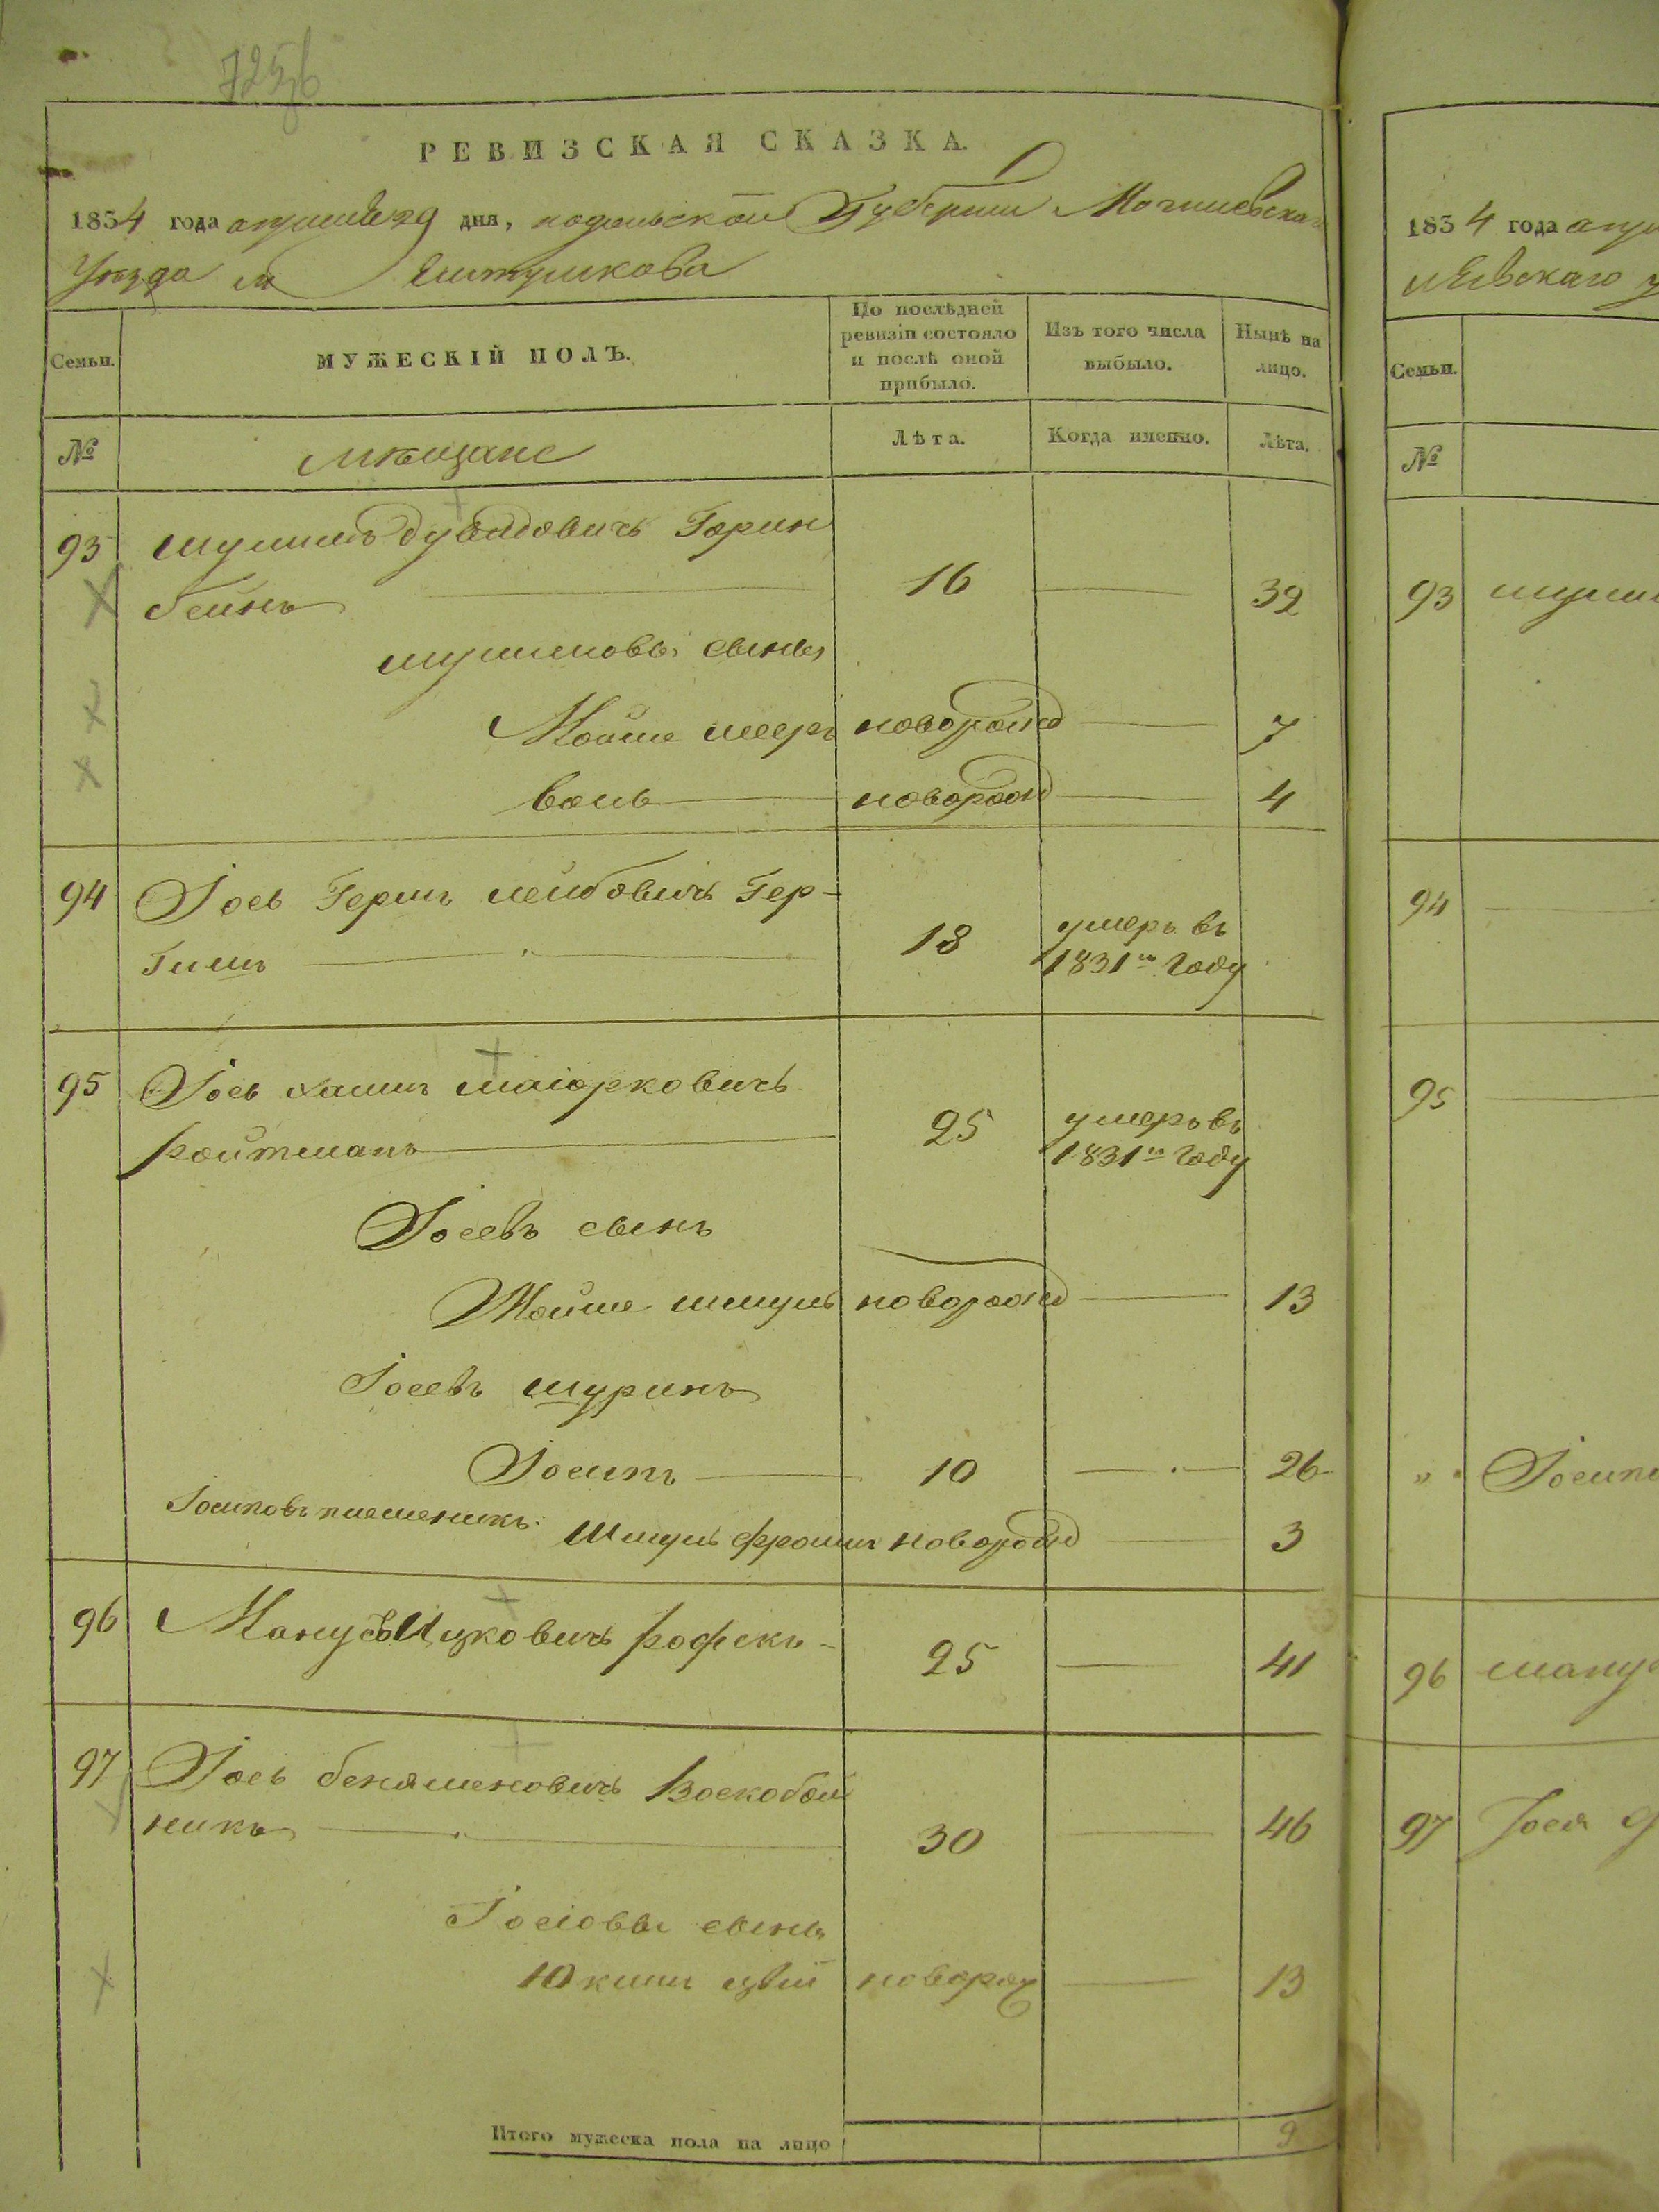 725
РЕВИЗСКАЯ СКАЗКА.
1834 года апреля 29 дня, подольской Губернии Могилевскаго
Уезда м
Семьи.
МУЖЕСКІЙ ПОЛЪ.
По послѣдней ревизіи состояло и послѣ оной прибыло.
Изъ того числа выбыло.
Нынѣ на лицо.
№
мещане
Лѣта.
Когда именно.
Лѣта.
93 шулимъ дувидовичъ Горин
бейнъ 16 32
шулимовы сыны
Мойше меер новорожд 7
волъ новорожд 4
94 Іось Гершъ лейбовичъ Гер-
18 умеръ въ
1831мъ Году
95 Іось хаимъ маіорковичъ
ройтманъ 25 умеръ въ
1831мъ Году
Іосевъ сынъ
Мойше шмуль новорожд 13
Іосевъ шуринъ
Іосипъ 10 26
Іосиповъ племеникъ:
Шмуль фроимъ новорожд 3
96 Манусъ Ицковичъ рофекъ 25 41
97 Іось беняменовичъ Воскобой
никъ 30 46
Іосіовы сыны
новорож 13
Итого мужеска пола на лицо 9
1834 года апр
левскаго у
Семьи.
№
93 шулим
94
95
" Іосипо
96 ману
97 Іося